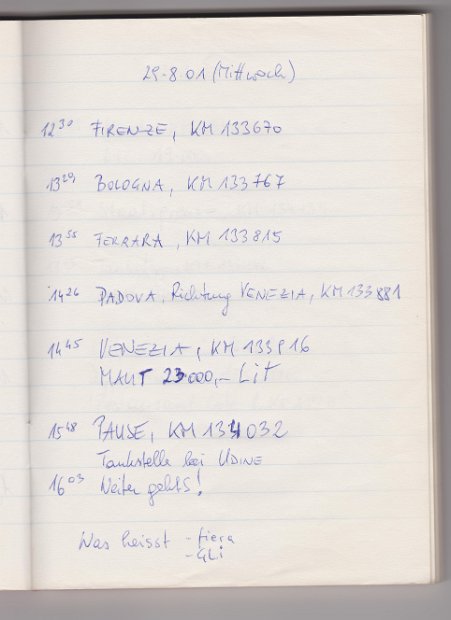 29.8.01 (Mittwoch)
12³⁰ FIRENZE, KM 133670
13²⁹ BOLOGNA, KM 133767
13⁵⁵ FERRARA, KM 133815
14²⁶ PADOVA, Richtung VENEZIA, KM 133881
14⁴⁵ VENEZIA, KM 133916
MAUT 23000,- Lit
15⁴⁸ PAUSE, KM 134032
Tankstelle bei UDINE
16⁰³ Weiter geht's!
Was heisst - fiera
- GLI